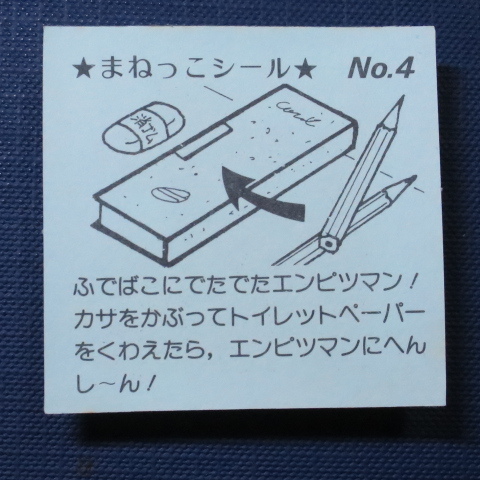 ★まねっこシール★ No.4
消ゴム
ふでばこにでたでたエンピツマン！
カサをかぶってトイレットペーパー
をくわえたら，エンピツマンにへん
し〜ん！